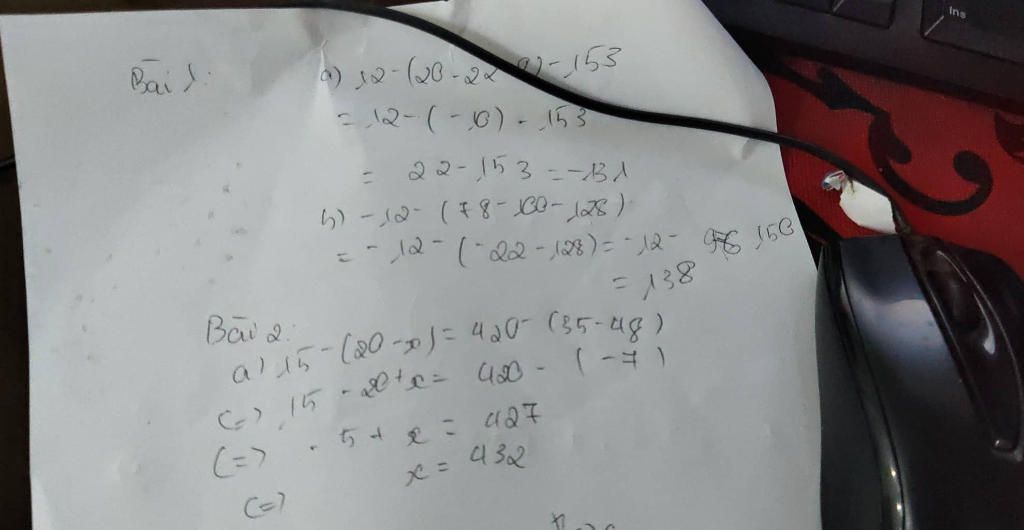 Ins
Bài 1: a) 12-(20-22 )-153
= 12-(-10) - 153
= 22-153 = -131
b) -12- (78-100-128)
= -12- (-22-128) = -12- 150
= 138
Bài 2:
a) 15-(20-x) = 420- (35-48)
(=) 15 - 20+x = 420 - (-7)
(=) -5+ x = 427
(=) x = 432